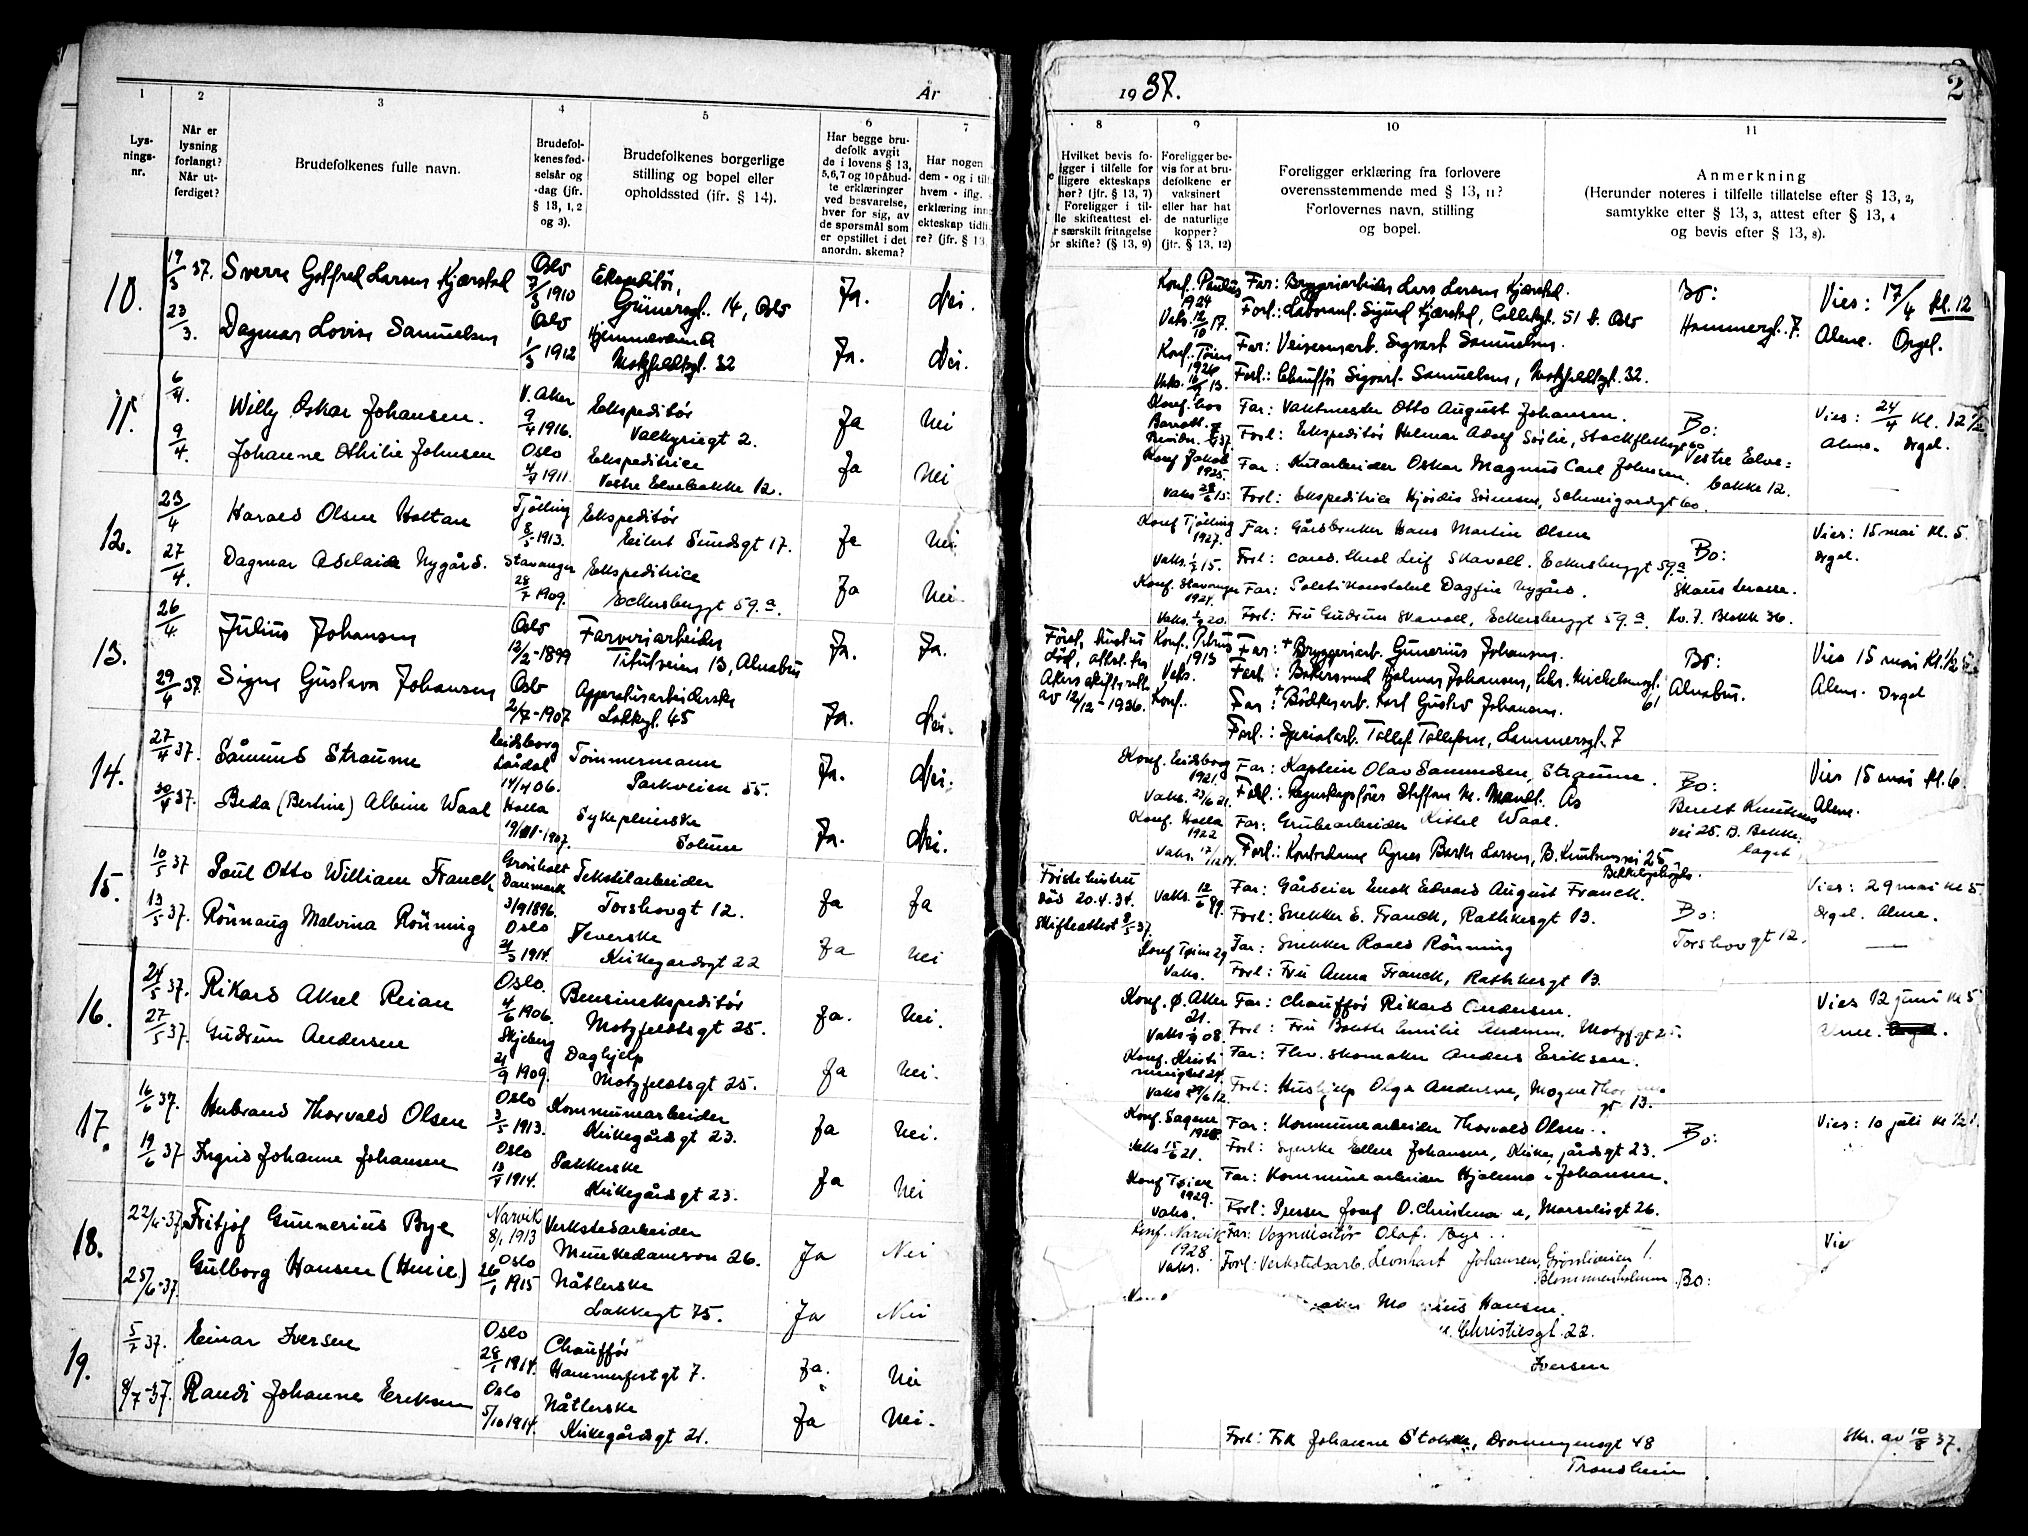 År
1937.
2
1
2
3
4
5
6
7
8
9
10
11
Lys-
nings-
nr.
Når er
lysning
forlangt?
Når ut-
ferdiget?
Brudefolkenes fulle navn.
Brudefol-
kenes fød-
selsår og
-dag (jfr.
§ 13, 1, 2
og 3).
Brudefolkenes borgerlige
stilling og bopel eller
opholdssted (jfr. § 14).
Har begge bru-
defolk avgit
de i lovens § 13,
5, 6, 7 og 10 påbud-
te erklæringer
ved besvarelse,
hver for sig, av
de spørsmål som
er opstillet i det
anordn. skema?
Har nogen
dem - og i til
hvem - iflg.
erklæring inn
ekteskap tidl
re? (jfr. § 13
Hvilket bevis fo-
ligger i tilfelle for
ligere ekteskaps
hør? (jfr. § 13, 7)
Foreligger i til-
lle skifteattest el-
r særskilt fritagelse
r skifte? (§ 13, 9)
Foreligger be-
vis for at bru-
defolkene er
vaksinert
eller har hat
de naturlige
kopper?
(jfr. § 13, 12)
Foreligger erklæring fra forlovere
overensstemmende med § 13, 11?
Forlovernes navn, stilling
og bopel.
Anmerkning
(Herunder noteres i tilfelle tillatelse efter § 13, 2,
samtykke efter § 13, 3, attest efter § 13, 4
og bevis efter § 13, 8).
10.
19/3 37.
23/3.
Sverre Gotfred Larsen Kjærstad
Oslo
7/3 1910
Ekspeditør,
Grünersgt. 14, Oslo
Ja.
Nei.
Konf. Paulus
1924
Vaks. 12/10 17.
Far: Bryggeriarbeider Lars Larsen Kjærstad.
Forl.: Laborant. Sigurd Kjærstad, Calletgt. 51 b. Oslo
Bo:
Hammergt. 7.
Vies: 17/4 kl. 12
Alene. Orgel.
Dagmar Lovise Samuelsen
Oslo
1/3 1912
Hjemmeværende
Motzfeldtsgt. 32
Ja.
Nei.
Konf. Tøien
1926
Far: Veivesenarb. Sigvart Samuelsen.
Forl.: Chauffør Sigvart Samuelsen, Motzfeldtsgt. 32.
11.
6/4.
9/4.
Willy Oskar Johansen.
V. Aker
9/4 1916.
Ekspeditør
Valkyriegt 2.
Ja
Nei
Far: Vaktmester Otto August Johansen.
Forl: Ekspeditør Helmar Adolf Sørlie, Stockflethsgt 60
Bo:
Vestre Elve=
bakke 12.
Vies: 24/4 Kl. 12 1/2
Alene. Orgel.
Johanne Othilie Johnsen
Oslo
4/4 1911.
Ekspeditrice
Vestre Elvebakke 12.
Ja
Nei
Konf Jakob
1925.
Vaks 28/6 15.
Far: Kutarbeider Oskar Magnus Carl Johnsen.
Forl: Ekspeditrice Hjørdis Sørensen, Schweigaardsgt 60.
12.
23/4
27/4.
Harald Olsen Holtan
Tjølling
8/5 1913.
Ekspeditør
Eilert Sundsgt 17.
Ja
Nei
Konf Tjølling
1927.
Far: Gårdbruker Hans Martin Olsen
Forl: cand. theol Leif Skavoll. Eckersbergsgt 59.a
Bo:
Skaus terasse.
Kv. 7. Blokk 36.
Vies: 15 mai Kl. 5.
Orgel.
Dagmar Adelaide Nygård.
Stavanger
28/7 1909.
Ekspeditrice
Eckersbergsgt 59.a
Ja
Nei
Konf. Stavanger
1924.
Far: Politikonstabel Dagfin Nygård.
Forl: Fru Gudrun Skavoll, Eckersbergsgt 59.a
13.
26/4.
29/4 37.
Julius Johansen
Oslo
12/2-1899
Farveriarbeider
Titutveien 13, Alnabru
Ja.
Ja.
av 12/12-1936.
Konf. Petrus
1913
Vaks.
Far: + Bryggeriarb. Gunerius Johansen.
Forl: Bakersvend Hjalmar Johansen, Chr. Michelsensgt. 61
Bo:
Alnabru.
Vies 15 mai Kl. 1/2
Alene. Orgel
Signe Gustava Johansen
Oslo
2/7-1907
Apparatusarbeiderske
Lakkegt. 45
Ja.
Nei.
Konf.
Far: + Bødkerarb. Karl Gustav Johansen.
Forl.: Spesialarb. Tollef Tollefsen, Lammersgt. 7
14.
27/4 37.
30/4 37.
Såmund Straume
Eidsborg
Lårdal
14/4 06.
Tømmermann
Parkveien 55.
Ja.
Nei.
Konf. Eidsborg
1921.
Vaks. 23/6 21.
Far: Kaptein Olav Samundsen, Straume.
Forl.: Regnskapsfører Steffen M. Mandt. Ås
Bo:
Bernt Knudsens
vei 25. B. Bekke-
laget
Vies 15 mai kl. 6.
Alene.
Beda (Bertine) Albine Waal
Holla
1907.
Sykepleierske
Solum
Ja.
Nei.
Konf. Holla
1922
Far: Grubearbeider Kittel Waal.
Forl.: Kontordame Agnes Barth Larsen, B. Knudsensvei 25
15.
10/5 37
13/5 37.
Poul Otto William Franck
Grønholt
Danmark
3/9 1896.
Tekstilarbeider
Torshovgt 12.
Ja
Ja
Første hustru
død 20.4.34.
Skifteattest 8/5 37.
Vaks. 12/6 99.
Far: Gårdeier Emil Edvard August Franck.
Forl: Snekker E. Franck, Rathkesgt 13.
Bo:
Torshovgt 12.
Vies: 29 mai Kl 5
Orgel. Alene.
Rønnaug Malvina Rønning
Oslo
21/3 1914.
Veverske
Kirkegårdsgt 22
Ja
Nei
Konf Tøien 29
Vaks.
Far: Snekker Roald Rønning
Forl: Fru Anna Franck, Rathkesgt 13.
16.
24/5 37.
27/5 37.
Rikard Aksel Reian
Oslo.
4/6 1906.
Bensinekspeditør
Motzfeldtsgt 25.
Ja.
Nei.
Konf. Ø. Aker
21.
Far: Chauffør Rikard Andersen.
Forl: Fru Borth Emilie Andersen. Motzf.gt 25.
Vies 12 juni Kl 5
Alene. Orgel.
Gudrun Andersen
Skjeberg
21/9 1909.
Daghjelp
Motzfeldtsgt 25.
Ja
Nei.
Vaks 29/6 12.
Far: Flv. skomaker Anders Eriksen.
Forl: Hushjelp Olga Andersen, Mogens Thor
gt 13.
17.
16/6 37.
19/6 37
Herbrand Thorvald Olsen
Oslo
3/5 1913.
Kommunearbeider
Kirkegårdsgt 23.
Ja
Nei.
Konf. Sagene
1928.
Vaks 15/6 21.
Far: Kommunearbeider Thorvald Olsen.
Forl: Syerske Ellen Johansen, Kirkegårdsgt 23.
Bo:
Vies: 10 juli Kl 1/2 1.
Ingrid Johanne Johansen
Oslo
13/1 1914.
Pakkerske
Kirkegårdsgt 23.
Ja
Nei
Konf Tøien
1929.
Vaks.
Far: Kommunearbeider Hjalmar Johansen.
Forl: Presser Josef O. Christensen, Marselisgt 26.
18.
22/6-37
25/6-37.
Fritjof Gunnerius Bye
Narvik
8/1 1913
Verkstedarbeider
Munkedamsvn 26.
Ja
Nei
Konf. Narvik
1928.
Vaks.
Far: Vognvisitør Olaf Bye
Forl: Verkstedsarb. Leonhart Johansen, Grønliveien 1.
Blommenholm.
Bo:
Vie
Gulborg Hansen (Huse)
Oslo
26/1 1915
Nåtlerske
Lakkegt 75.
Ja
Nei
Hansen.
Christiesgt. 22.
19.
5/7 37.
8/7-37.
Einar Iversen
Oslo
28/1 1914.
Chauffør
Hammerfestgt 7.
Ja.
Nei
Iversen
Randi Johanne Eriksen
Oslo
5/10 1914.
Nåtlerske
Kirkegårdsgt 21.
Ja
Nei.
Forl: Frk Johanne Stokke, Dronningensgt 48
Trondheim
Skr. av 10/8 37.